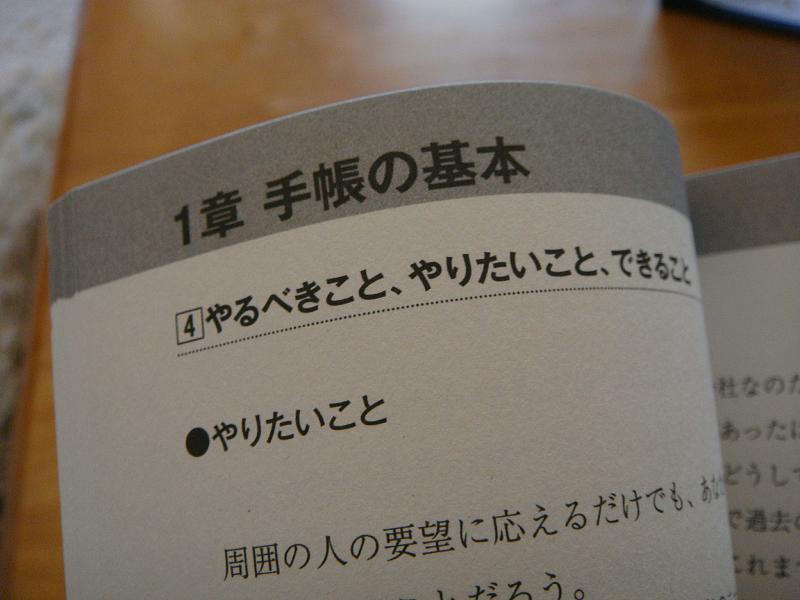 1章 手帳の基本
4 やるべきこと、やりたいこと、できること
●やりたいこと
周囲の人の要望に応えるだけでも、あな
とだろう。
社なのた
あったに
どうして
で過去の
これまで